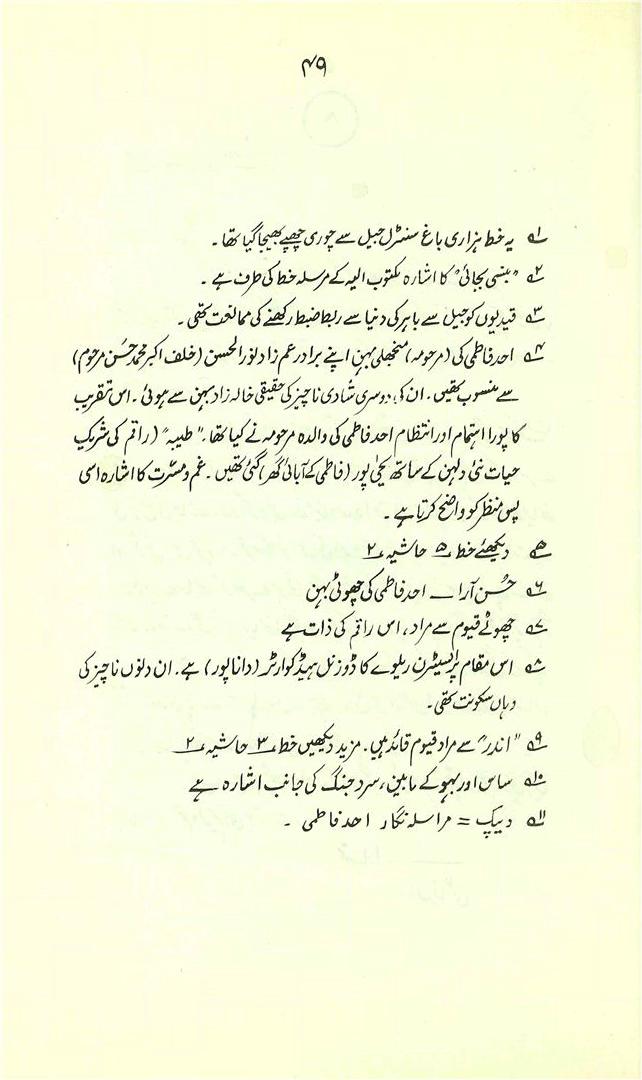 ۴۹
۱؎ یہ خط ہزاری باغ سنٹرل جیل سے چوری چھپے بھیجا گیا تھا۔
۲؎ "بنسی بجائی" کا اشارہ مکتوب الیہ کے مرسلہ خط کی طرف ہے۔
۳؎ قیدیوں کو جیل سے باہر کی دنیا سے ربط ضبط رکھنے کی ممانعت تھی۔
۴؎ احد فاطمی کی (مرحومہ) منجھلی بہن اپنے برادر عم زاد نورالحسن (خلف اکبر محمد حسن مرحوم)
سے منسوب تھیں۔ ان کی دوسری شادی ناچیز کی حقیقی خالہ زاد بہن سے ہوئی۔ اس تقریب
کا پورا اہتمام اور انتظام احد فاطمی کی والدہ مرحومہ نے کیا تھا۔ "طیبہ" (راقم کی شریکِ
حیات نئی دلہن کے ساتھ یحیٰی پور (فاطمی کے آبائی گھر) گئی تھیں۔ غم و مسّرت کا اشارہ اسی
پس منظر کو واضح کرتا ہے۔
۵؎ دیکھئے خط ۵ حاشیہ ۲
۶؎ حُسن آرا — احد فاطمی کی چھوٹی بہن
۷؎ چھوٹے قیوم سے مراد، اس راقم کی ذات ہے
۸؎ اس مقام پر ایسٹرن ریلوے کا ڈوزنل ہیڈ کوارٹر (داناپور) ہے۔ ان دلوں ناچیز کی
وہاں سکونت تھی۔
۹؎ "اندر" سے مراد قیوم قائد ہیں۔ مزید دیکھیں خط ۳ حاشیہ ۲
۱۰؎ ساس اور بہو کے مابین، سرد جنگ کی جانب اشارہ ہے
۱۱؎ دیپک = مراسلہ نگار احد فاطمی ۔